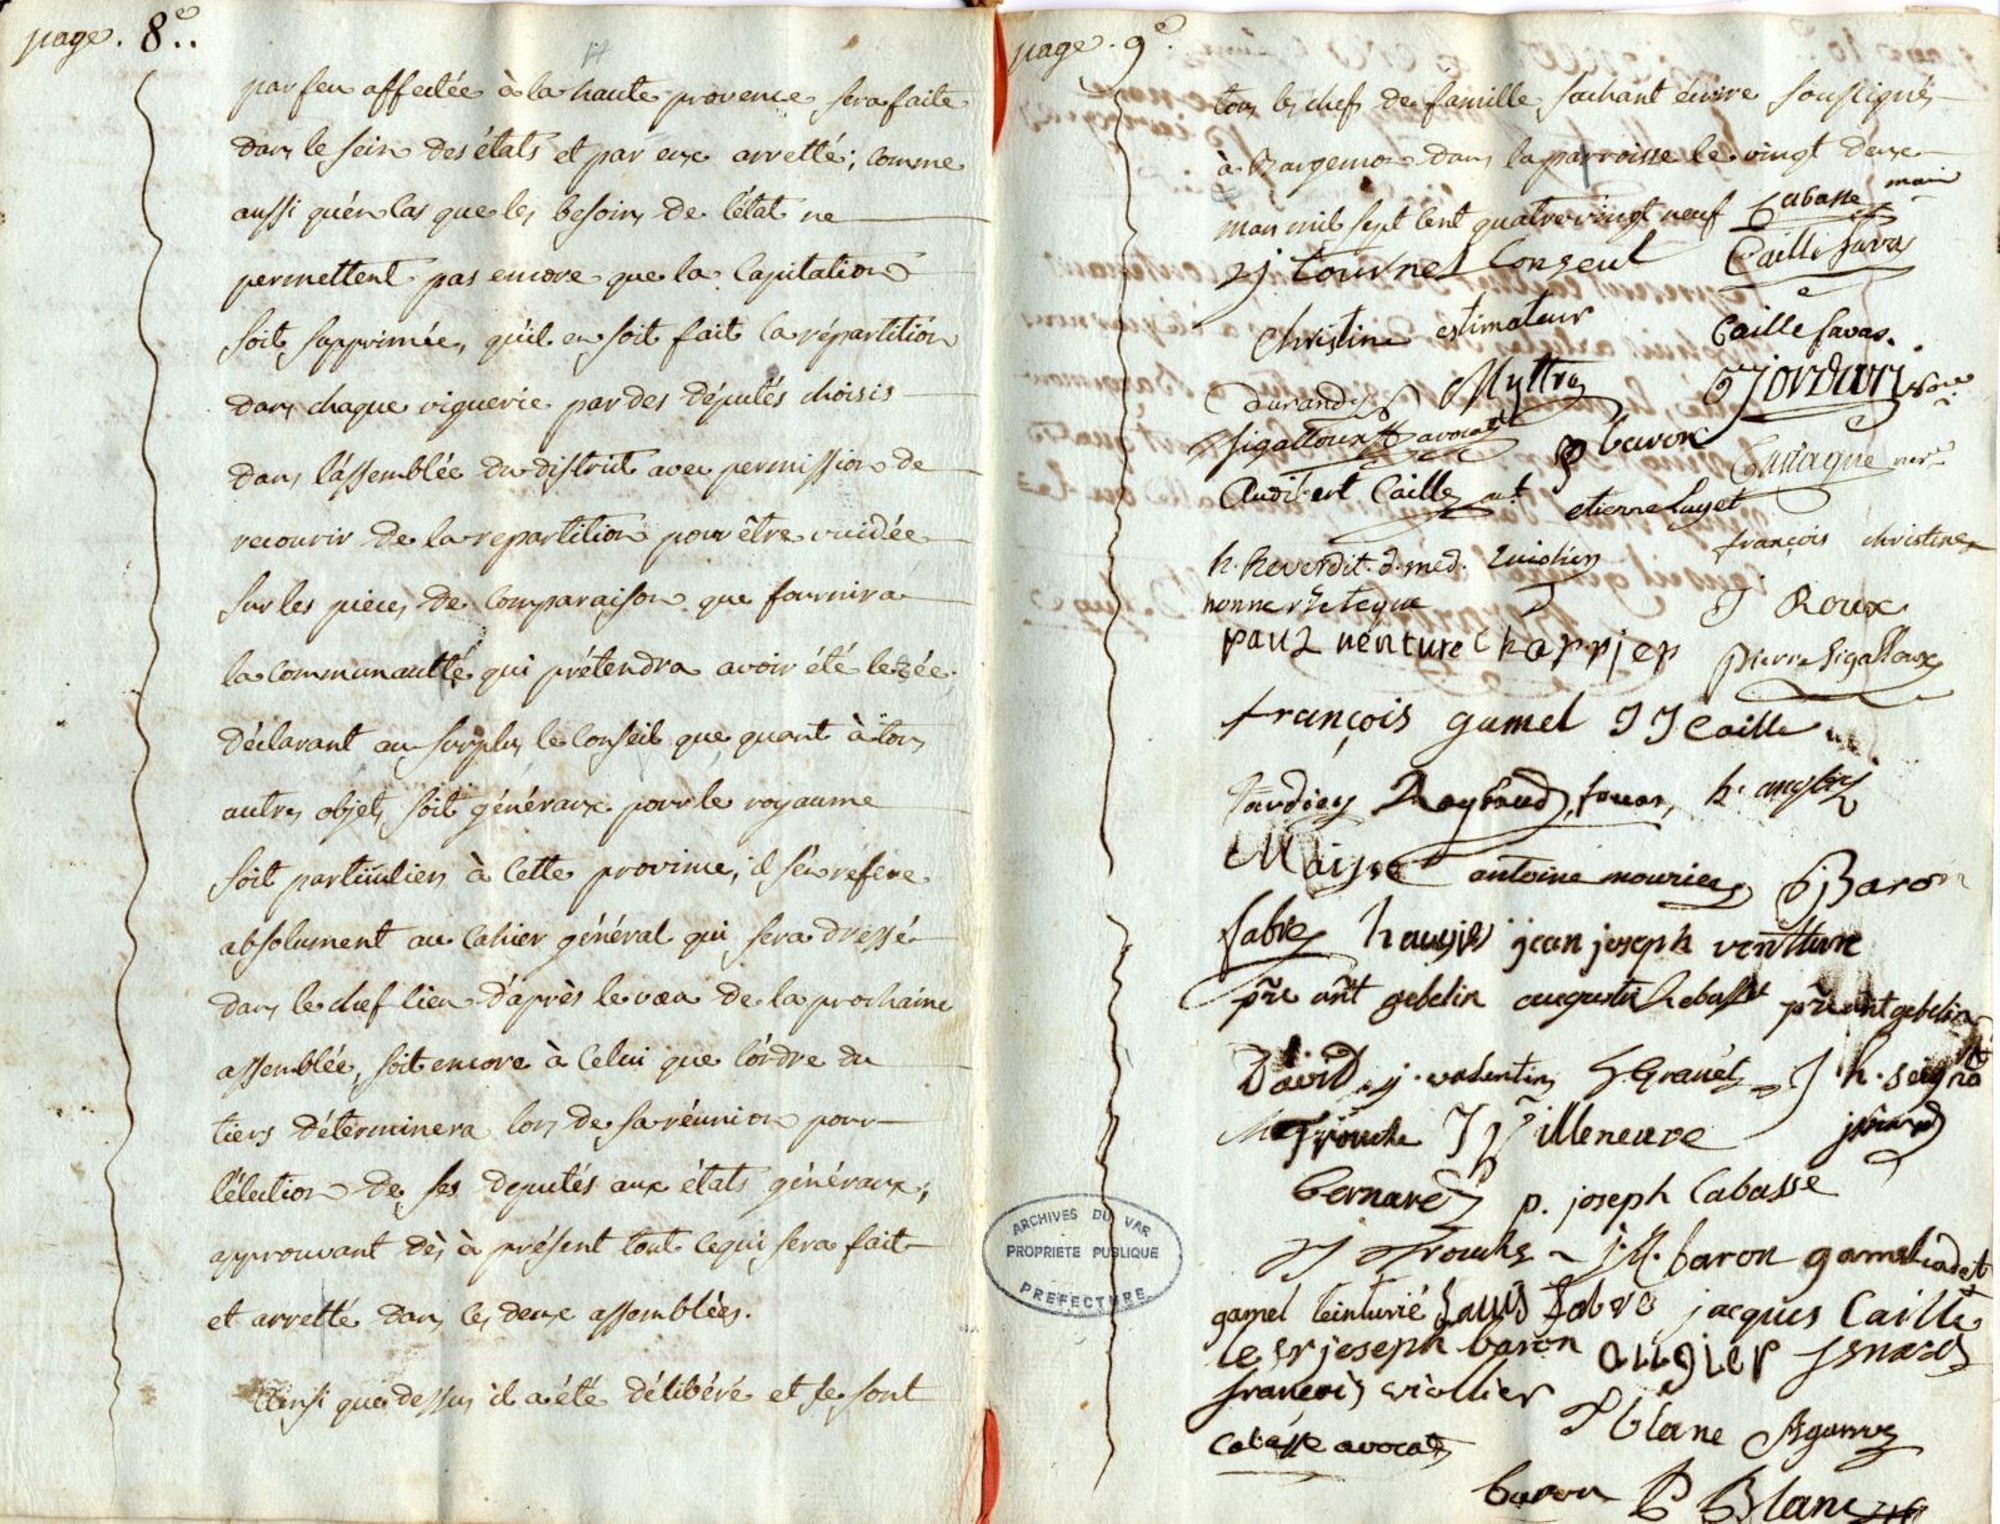 page. 8e..
par feu affectée à la haute provence sera faite
dans le sein des états et par eux arretté; comme
aussi qu'en cas que les besoins de l'état ne
permettent pas encore que la Capitation
soit supprimée, qu'il en soit fait la répartition
dans chaque viguerie par des députés choisis
dans l'assemblée du district avec permission de
recourir de la repartition pour être vuidée
sur les pieces de Comparaison que fournira
la communautté qui prétendra avoir été lezée;
déclarant au surplus le Conseil que quant à tous
autres objets soit généraux pour le royaume
soit particuliers à Cette province, il s'en réfere
absolument au Cahier général qui sera dressé
dans le chef lieu d'après le vœu de la prochaine
assemblée, soit encore à Celui que l'ordre du
tiers déterminera lors de sa réunion pour
l'élection de ses députés aux états généraux;
approuvant dès à présent tout Ce qui sera fait
et arretté dans Ces deux assemblées.
Ainsi que dessus il a été délibéré et se sont
page. 9e.
tous les chefs de famille sachant écrire soussignés
à Bargemon dans la parroisse le vingt deux
mars mil sept Cent quatre vingt neuf Cabasse maire
J tournel Conseul Caille Favas
Christine estimateur Caille favas.
durand Myttre Jordany
Sigalloux avocat p baron
Audibert Caille etienne Luget
h. Reverdit. d. med. françois christine
J Roux
paul venture Chappier pierre Sigalloux
françois gamel J J Caille
Tardieu
Maisse antoine mourier J Baron
fabre jean joseph venture
pre ant gebelin augustin pre ant gebelin
David j. valentin
Trouche J J Villeneuve
bernard p. joseph Cabasse
J Trouche baron gamel cadet
gamel teinturié Louis Fabre jacques Caille
le sr joseph baron augier Isnard
françois viollier
P blanc
Cabasse avocat
baron P Blanc
ARCHIVES DU VAR
PROPRIETE PUBLIQUE
PREFECTURE